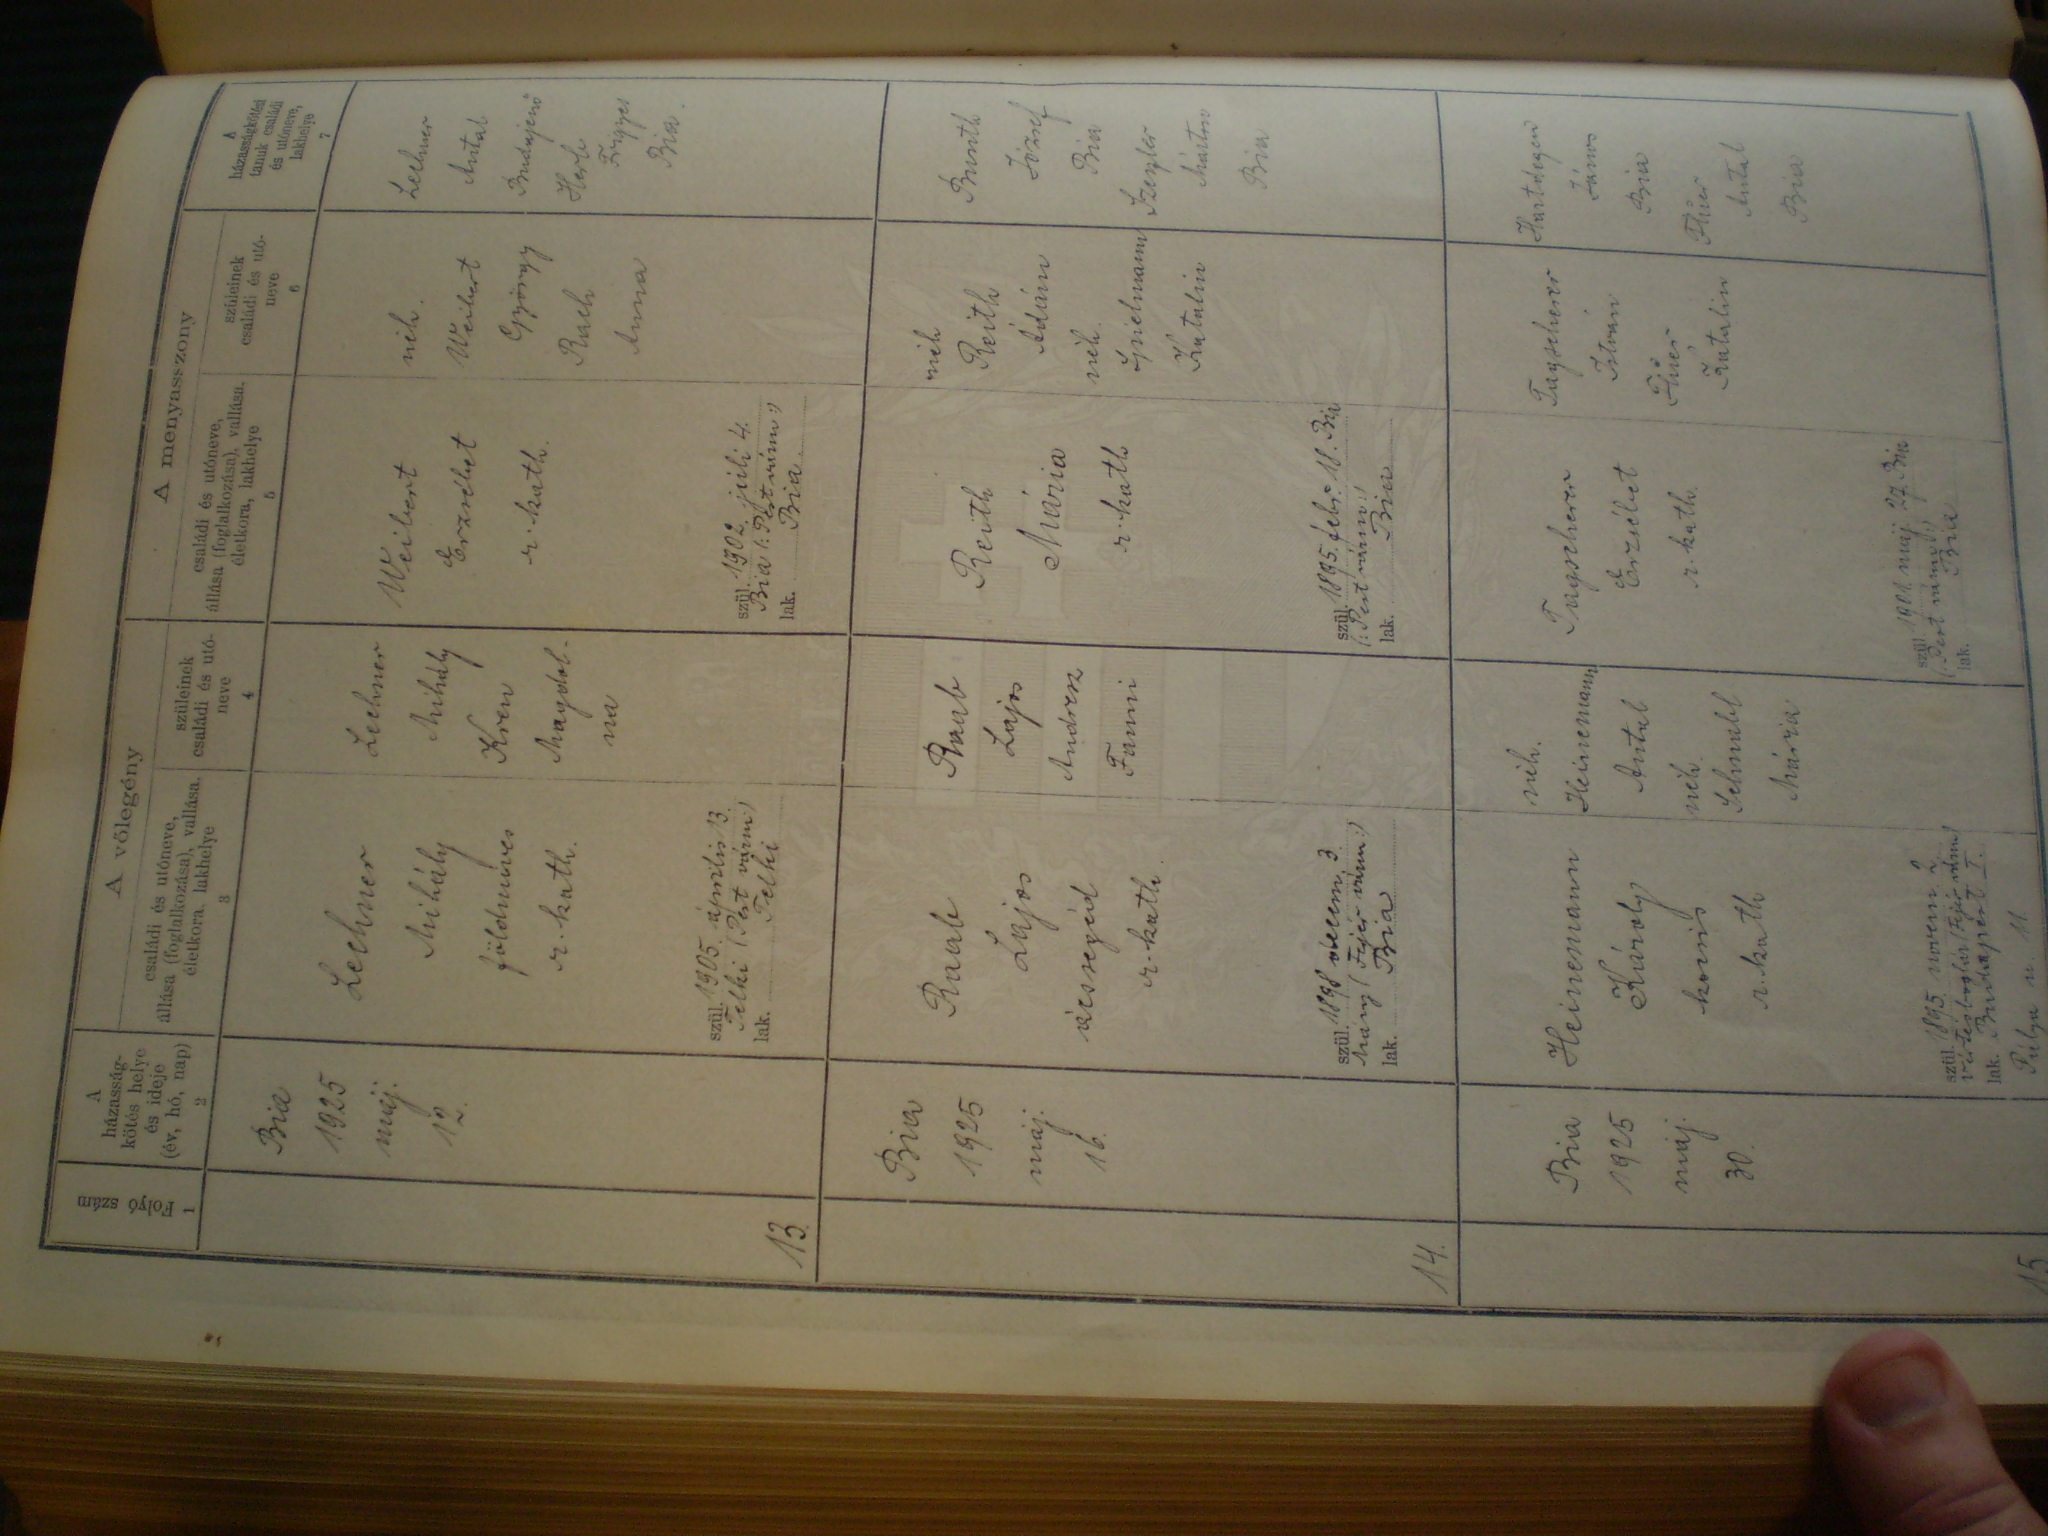 A vőlegény
A menyasszony
Folyó szám
1
A
házasság-
kötés helye
és ideje
(év, hó, nap)
2
családi és utóneve,
állása (foglalkozása), vallása,
életkora, lakhelye
3
szüleinek
családi és utó-
neve
4
családi és utóneve,
állása (foglalkozása), vallása,
életkora, lakhelye
5
szüleinek
családi és utó-
neve
6
A
házasságkötési
tanuk családi
és utóneve,
lakhelye
7
13.
Bia
1925
máj.
12.
Lechner
Mihály
földmíves
r. kath.
szül. 1905. április 13.
Telki (Pest várm)
lak. Telki
Lechner
Mihály
Kren
Magdol-
na
Weibert
Erzsébet
r. kath.
szül. 1902. júli 4.
Bia (: Pest várm :)
lak. Bia
néh.
Weibert
György
Rach
Anna
Lechner
Antal
Budajenő
Herb
Frigyes
Bia.
14.
Bia
1925
máj.
16.
Raab
Lajos
ácssegéd
r. kath.
szül. 1898 decem. 3.
Mány (Fejér várm :)
lak. Bia
Raab
Lajos
Andresz
Fanni
Reith
Mária
r. kath
szül. 1895. febr. 18. Bia
(: Pest várm :)
lak. Bia
néh
Reith
Ádám
néh.
Spielmann
Katalin
József
Bia
Márton
Bia
15
Bia
1925
máj.
30.
Heinemann
Károly
kocsis
r. kath
szül. 1895. novem 2.
(Fejér várm)
lak. Budapest I.
u. 11.
néh.
Heinemann
Antal
néh.
Schmidt
Mária
Tagscherer
Erzsébet
r. kath.
szül. 1901. máj. 27. Bia
(: Pest várm :)
lak. Bia
Tagscherer
István
Fhüer
Katalin
Hartdegen
János
Bia
Fhüer
Antal
Bia